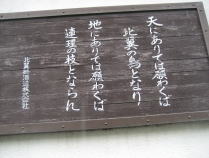 天にありては願わくば
比翼の鳥となり
地にありては願わくば
連理の枝とならん